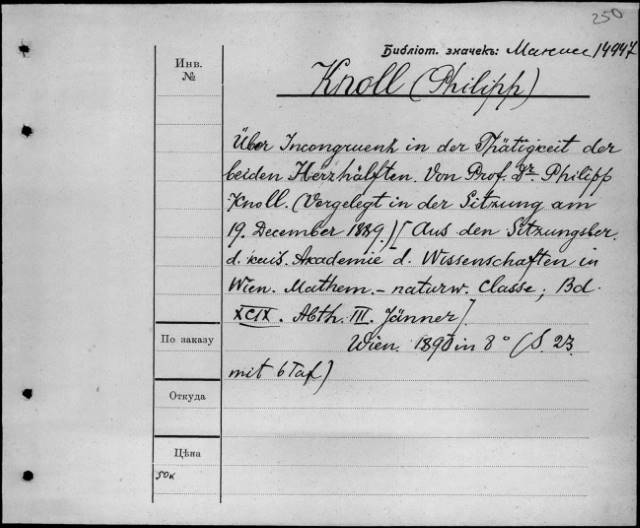 250
Библіот. значекъ: 14947
Инв.
№
Knoll (Philipp)
Über Incongruenh in der Thätigkeit der
beiden Herzhälften. Von Prof. Dr. Philipp
Knoll. (Vorgelegt in der Sitzung am
19. December 1889.) [Aus den Sitzungsber.
d. kais. Akademie d. Wissenschaften in
Wien. Mathem.-naturw. Classe; Bd.
XCIX. Abth. III. Jänner].
По заказу
Wien. 1890 in 8° (S. 23.
mit 6 Taf)
Откуда
Цѣна
50к